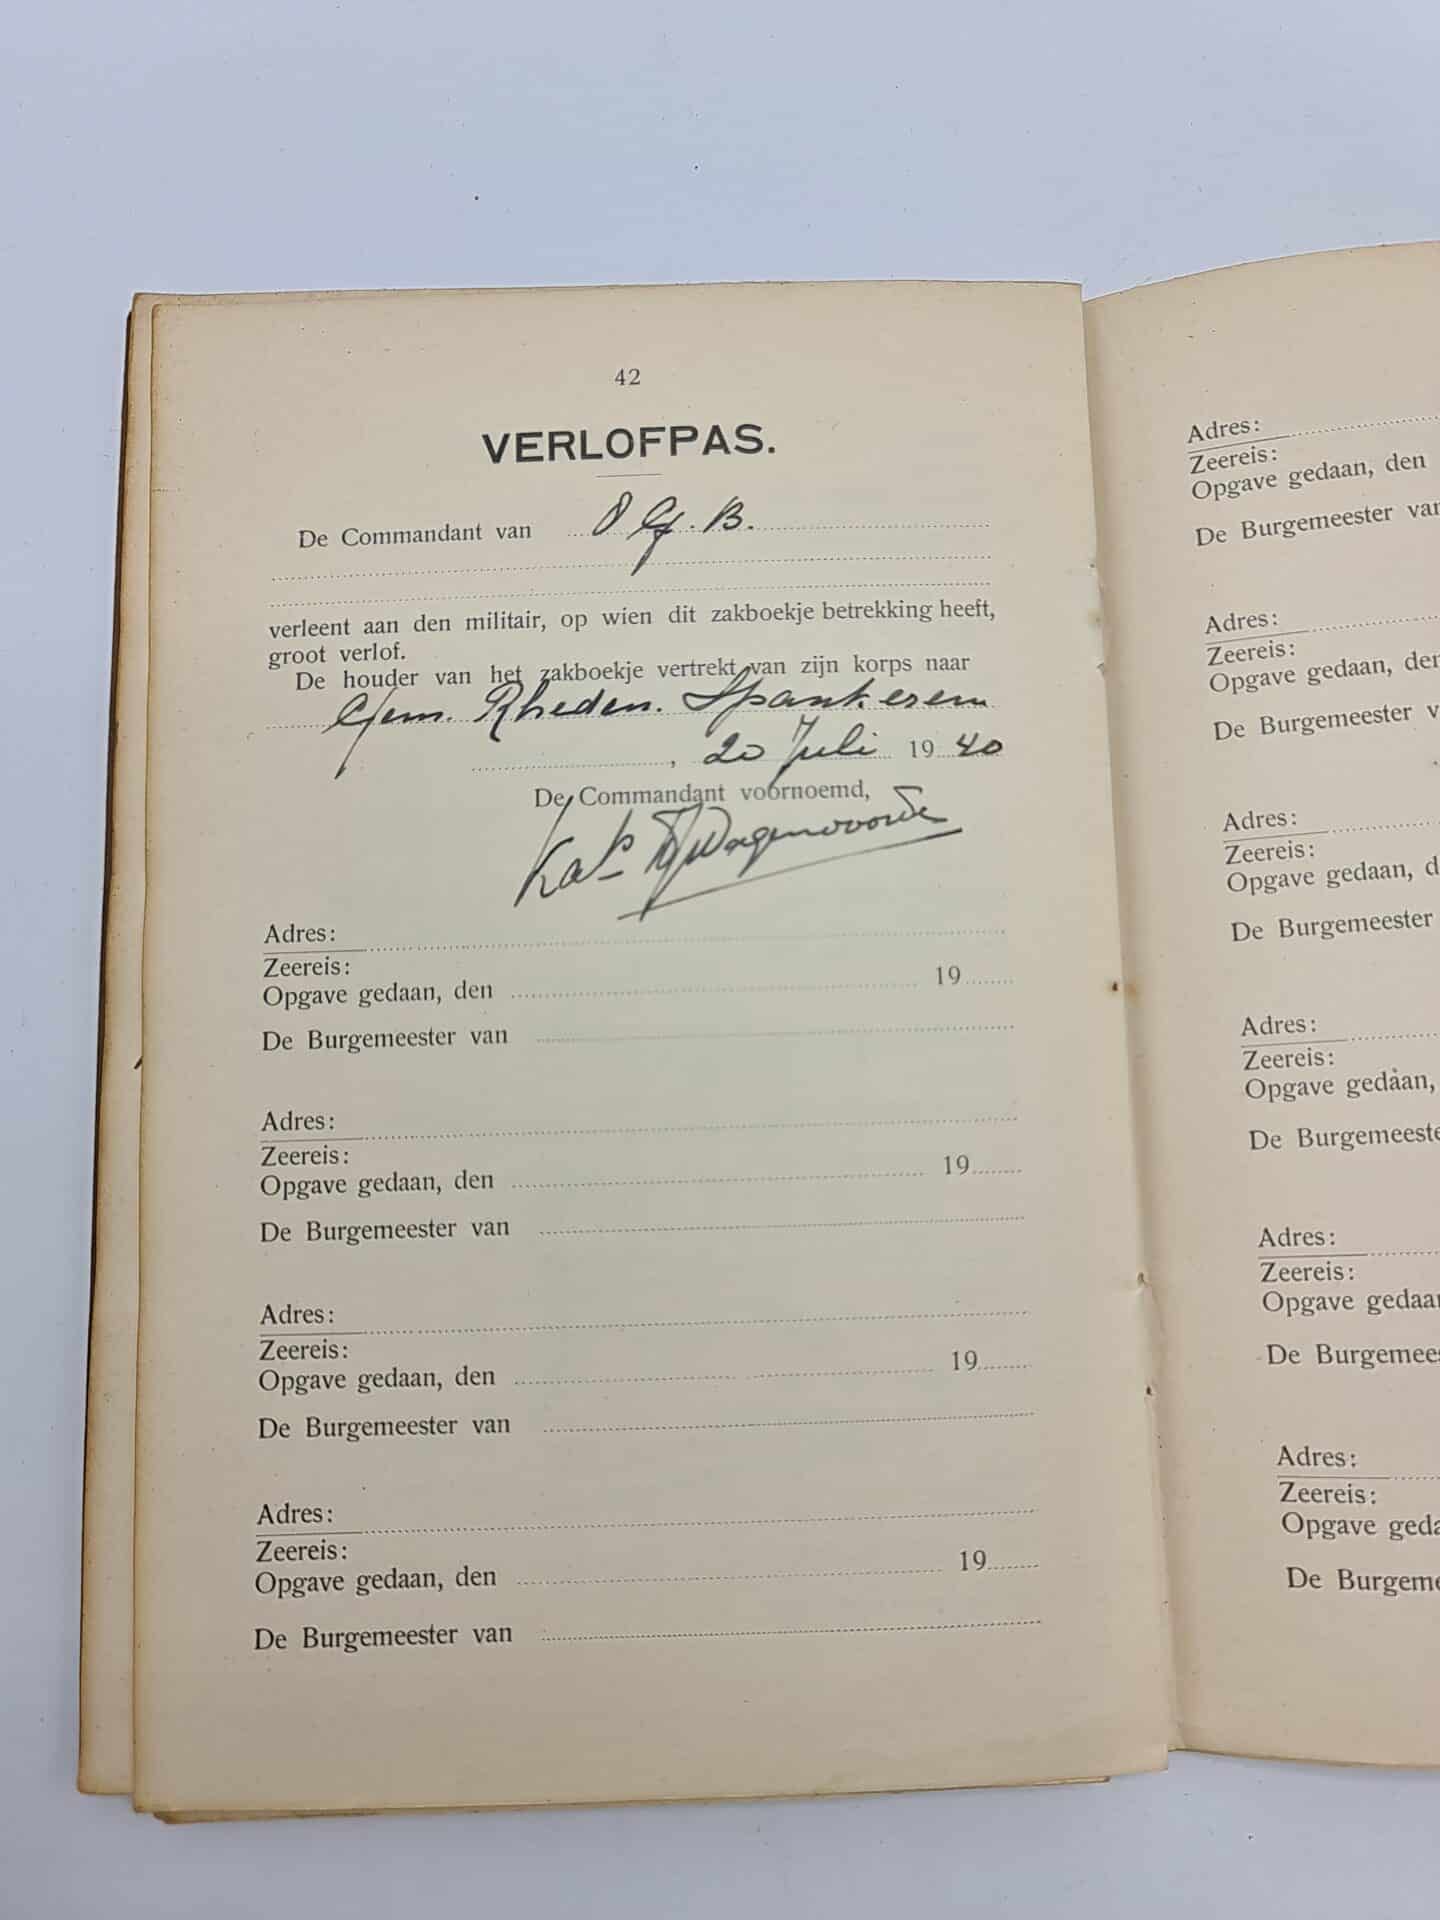 42
VERLOFPAS.
De Commandant van
verleent aan den militair, op wien dit zakboekje betrekking heeft,
groot verlof.
De houder van het zakboekje vertrekt van zijn korps naar
Gem. Rheden. Spankeren
, 20 Juli 1940
De Commandant voornoemd,
Adres:
Zeereis:
Opgave gedaan, den 19
De Burgemeester van
Adres:
Zeereis:
Opgave gedaan, den 19
De Burgemeester van
Adres:
Zeereis:
Opgave gedaan, den 19
De Burgemeester van
Adres:
Zeereis:
Opgave gedaan, den 19
De Burgemeester van
Adres:
Zeereis:
Opgave gedaan, den
De Burgemeester van
Adres:
Zeereis:
Opgave gedaan, den
De Burgemeester
Adres:
Zeereis:
Opgave gedaan,
De Burgemeester
Adres:
Zeereis:
Opgave gedaan,
De
Adres:
Zeereis:
Opgave
De
Adres:
Zeereis:
Opgave
De